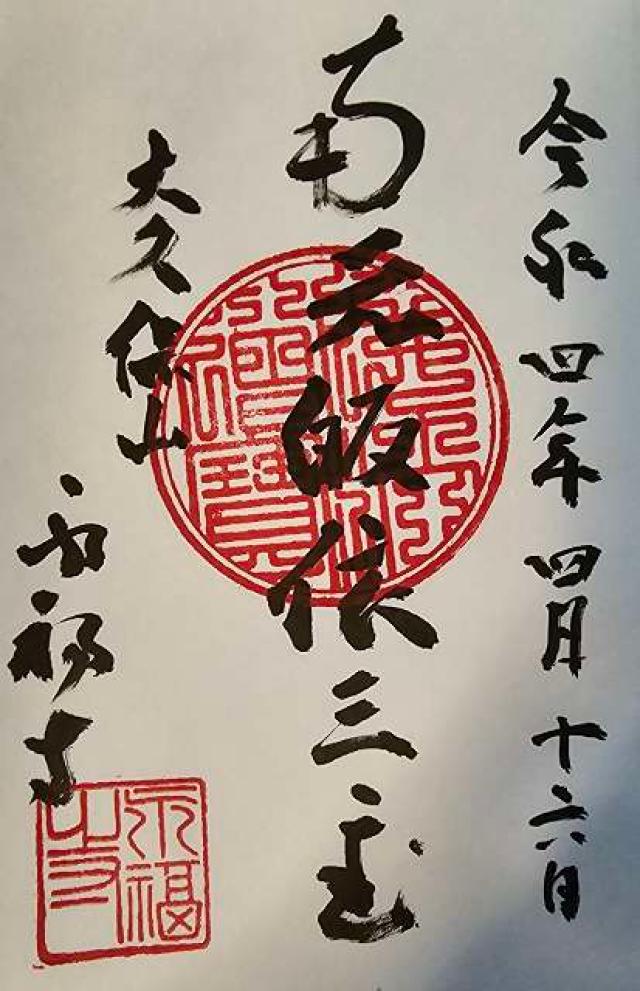 令和四年四月十六日
南無皈依三宝
大久保山
永福寺
永福